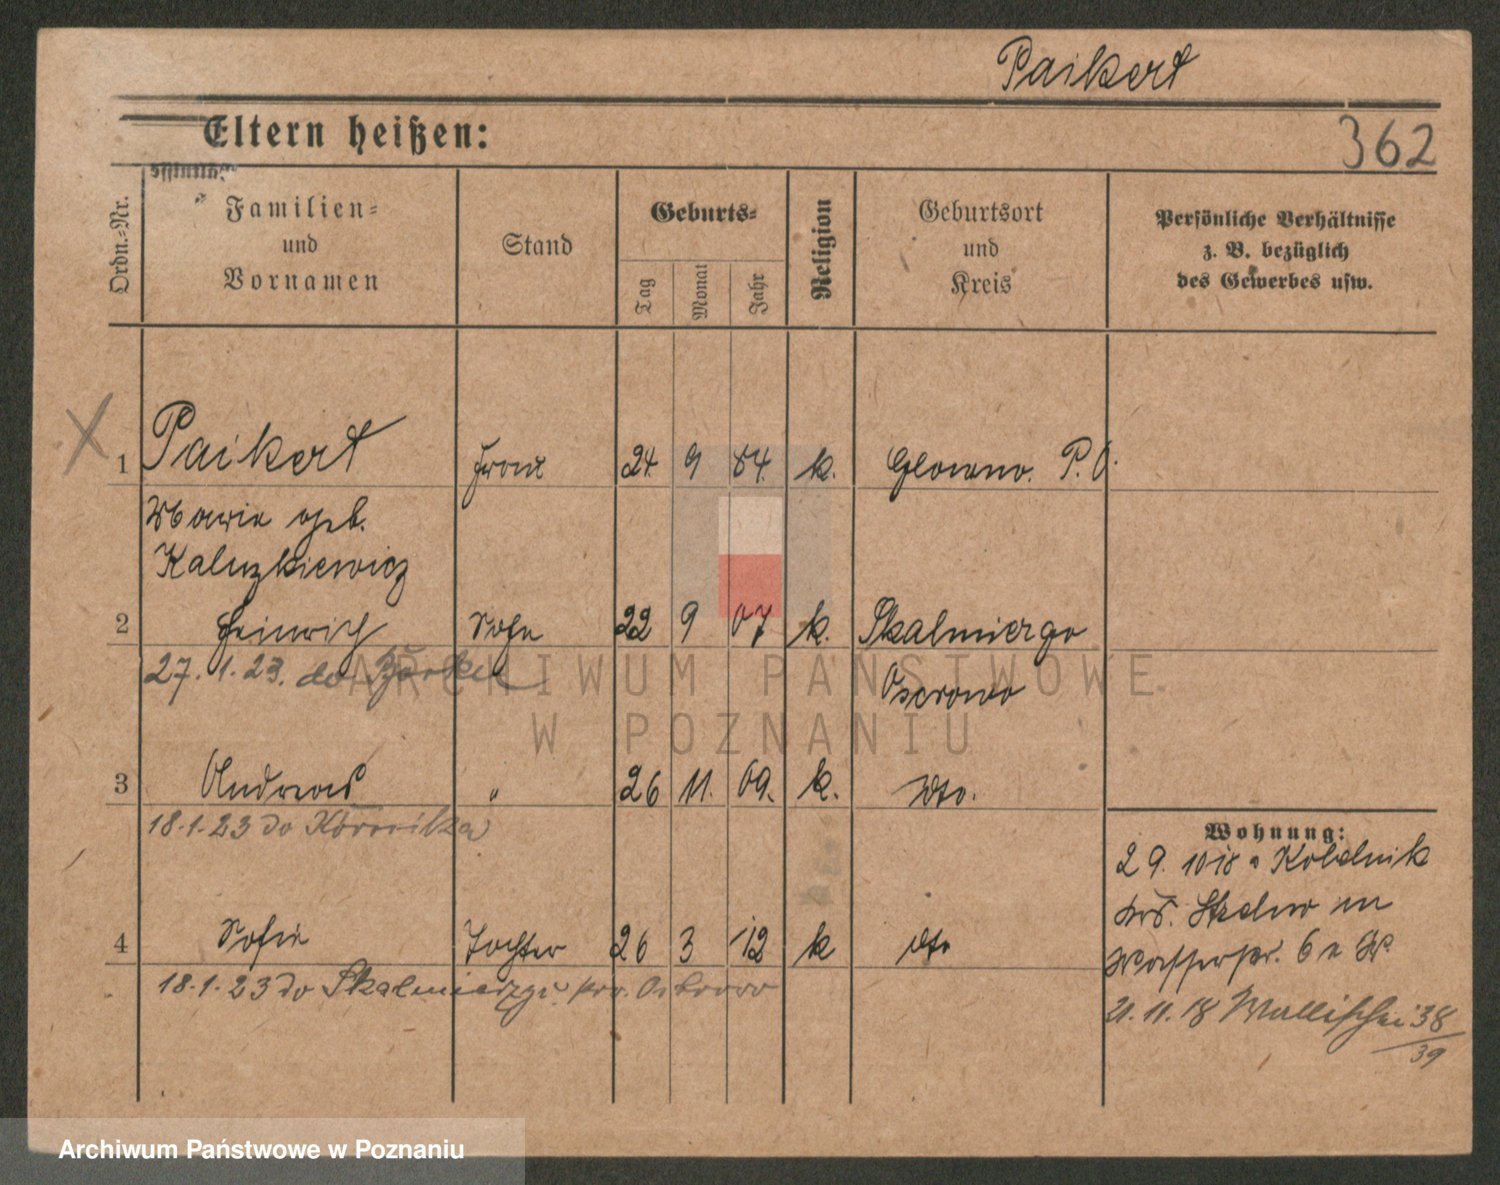 Paikert
Eltern heißen:
362
Ordn.=Nr.
Familien=
und
Vornamen
Stand
Geburts=
Tag
Monat
Jahr
Religion
Geburtsort
und
Kreis
Persönliche Verhältnisse
z. B. bezüglich
des Gewerbes usw.
X 1 Paikert 24 9 84. k. Glowno. P. O.
Marie geb.
Kaluzkiewicz
2 Heinrich Sohn 22 9 07 k. Skalmierzyc
27. 1. 23. do
Ostrowo
3 Andreas " 26 11. 09. k. dto.
18.1.23 do
4 Sofie Tochter 26 3 12 k dto
18.1.23 do Skalmierzyc
Wohnung:
29. 10 18
Strelno
Wasserstr. 6
21. 11. 18 Wallischei 38
39
ARCHIWUM PAŃSTWOWE
W POZNANIU
Archiwum Państwowe w Poznaniu